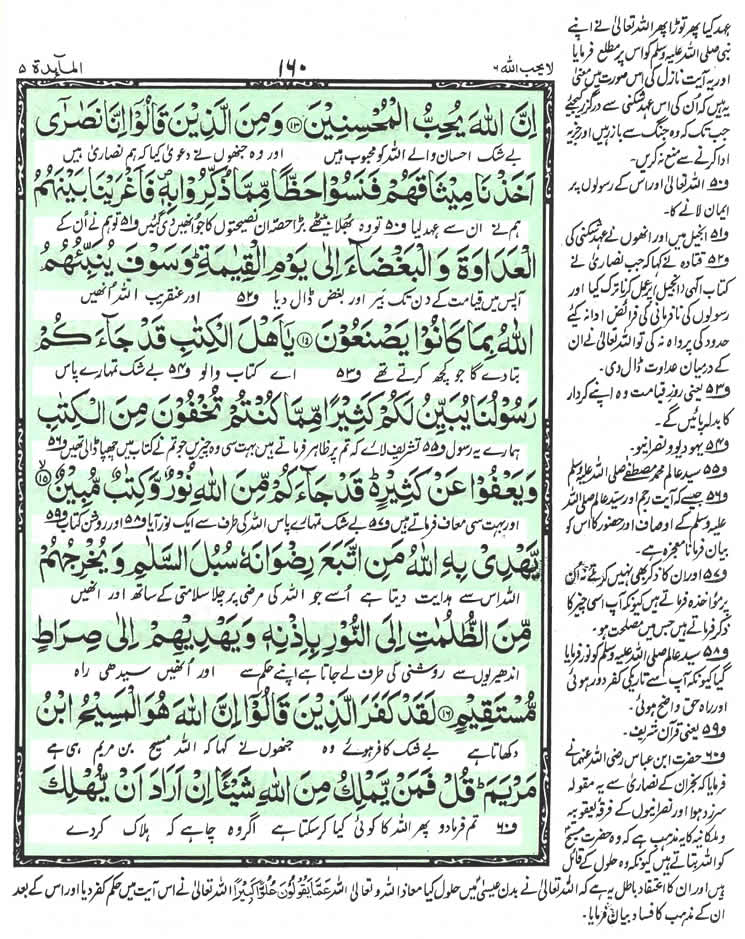 لا یحب اللہ ۶
۱۶۰
المآىِٕدۃ ۵
اِنَّ اللّٰهَ یُحِبُّ الْمُحْسِنِیْنَ ﴿۱۳﴾ وَ مِنَ الَّذِیْنَ قَالُوْۤا اِنَّا نَصٰرٰۤى
بے شک احسان والے اللہ کو محبوب ہیں اور وہ جنھوں نے دعویٰ کیا کہ ہم نصاریٰ ہیں
اَخَذْنَا مِیْثَاقَهُمْ فَنَسُوْا حَظًّا مِّمَّا ذُكِّرُوْا بِهٖ۪ فَاَغْرَیْنَا بَیْنَهُمُ
ہم نے ان سے عہد لیا ف۵۰ تو وہ بھلا بیٹھے بڑا حصّہ ان نصیحتوں کا جو انھیں دی گئیں ف۵۱ تو ہم نے اُن کے
الْعَدَاوَةَ وَ الْبَغْضَآءَ اِلٰى یَوْمِ الْقِیٰمَةِؕ وَ سَوْفَ یُنَبِّئُهُمُ
آپس میں قیامت کے دن تک بَیر اور بغض ڈال دیا ف۵۲ اور عنقریب اللہ اُنھیں
اللّٰهُ بِمَا كَانُوْا یَصْنَعُوْنَ ﴿۱۴﴾ یٰۤاَهْلَ الْكِتٰبِ قَدْ جَآءَكُمْ
بتا دے گا جو کچھ کرتے تھے ف۵۳ اے کتاب والو ف۵۴ بے شک تمہارے پاس
رَسُوْلُنَا یُبَیِّنُ لَكُمْ كَثِیْرًا مِّمَّا كُنْتُمْ تُخْفُوْنَ مِنَ الْكِتٰبِ
ہمارے یہ رسول ف۵۵ تشریف لائے کہ تم پر ظاہر فرماتے ہیں بہت سی وہ چیزیں جو تم نے کتاب میں چھپا ڈالی تھیں ف۵۶
وَ یَعْفُوْا عَنْ كَثِیْرٍ۬ؕ قَدْ جَآءَكُمْ مِّنَ اللّٰهِ نُوْرٌ وَّ كِتٰبٌ مُّبِیْنٌۙ ﴿۱۵﴾
اور بہت سی معاف فرماتے ہیں ف۵۷ بے شک تمہارے پاس اللہ کی طرف سے ایک نور آیا ف۵۸ اور روشن کتاب ف۵۹
یَّهْدِیْ بِهِ اللّٰهُ مَنِ اتَّبَعَ رِضْوَانَهٗ سُبُلَ السَّلٰمِ وَ یُخْرِجُهُمْ
اللہ اس سے ہدایت دیتا ہے اُسے جو اللہ کی مرضی پر چلا سلامتی کے ساتھ اور انھیں
مِّنَ الظُّلُمٰتِ اِلَى النُّوْرِ بِاِذْنِهٖ وَ یَهْدِیْهِمْ اِلٰى صِرَاطٍ
اندھیریوں سے روشنی کی طرف لے جاتا ہے اپنے حکم سے اور اُنھیں سیدھی راہ
مُّسْتَقِیْمٍ ﴿۱۶﴾ لَقَدْ كَفَرَ الَّذِیْنَ قَالُوْۤا اِنَّ اللّٰهَ هُوَ الْمَسِیْحُ ابْنُ
دکھاتا ہے بے شک کافر ہوئے وہ جنھوں نے کہا کہ اللہ مسیح بن مریم ہی ہے
مَرْیَمَؕ قُلْ فَمَنْ یَّمْلِكُ مِنَ اللّٰهِ شَیْــٴًـا اِنْ اَرَادَ اَنْ یُّهْلِكَ
ف۶۰ تم فرما دو پھر اللہ کا کوئی کیا کر سکتا ہے اگر وہ چاہے کہ ہلاک کر دے
عہد کیا پھر توڑا پھر اللہ تعالیٰ نے اپنے
نبی صلی اللہ علیہ وسلم کو اس پر مطلع فرمایا
اور یہ آیت نازل کی اس صورت میں معنی
یہ ہیں کہ اُن کی اس عہد شکنی سے درگزر کیجئے
جب تک کہ وہ جنگ سے باز رہیں اور جزیہ
ادا کرنے سے منع نہ کریں۔
ف۵۰ اللہ تعالیٰ اور اس کے رسولوں پر
ایمان لانے کا۔
ف۵۱ انجیل میں اور انھوں نے عہد شکنی کی
ف۵۲ قتادہ نے کہا کہ جب نصاریٰ نے
کتاب الٰہی (انجیل) پر عمل کرنا ترک کیا اور
رسولوں کی نافرمانی کی فرائض ادا نہ کئے
حدود کی پرواہ نہ کی تو اللہ تعالیٰ نے ان
کے درمیان عداوت ڈال دی۔
ف۵۳ یعنی روزِ قیامت وہ اپنے کردار
کا بدلہ پائیں گے۔
ف۵۴ یہودیو و نصرانیو۔
ف۵۵ سید عالم محمد مصطفےٰ صلی اللہ علیہ وسلم
ف۵۶ جیسے کہ آیتِ رجم اور سید عالم صلی اللہ
علیہ وسلم کے اوصاف اور حضور کا اس کو
بیان فرمانا معجزہ ہے۔
ف۵۷ اور ان کا ذکر بھی نہیں کرتے نہ ان
پر مؤاخذہ فرماتے ہیں کیونکہ آپ اسی چیز کا
ذکر فرماتے ہیں جس میں مصلحت ہو۔
ف۵۸ سید عالم صلی اللہ علیہ وسلم کو نور فرمایا
گیا کیونکہ آپ سے تاریکیِ کفر دور ہوئی
اور راہِ حق واضح ہوئی۔
ف۵۹ یعنی قرآن شریف۔
ف۶۰ حضرت ابن عباس رضی اللہ عنہما نے
فرمایا کہ نجران کے نصاریٰ سے یہ مقولہ
سرزد ہوا اور نصرانیوں کے فرقہ یعقوبیہ
و ملکانیہ کا یہ مذہب ہے کہ وہ حضرت مسیح
کو اللہ بتاتے ہیں کیونکہ وہ حلول کے قائل
ہیں اور ان کا اعتقادِ باطل یہ ہے کہ اللہ تعالیٰ نے بدنِ عیسیٰ میں حلول کیا معاذ اللہ و تعالی اللہ عَمَّا یَقُوْلُوْنَ عُلُوًّا کَبِیْرًا اللہ تعالیٰ نے اس آیت میں حکمِ کفر دیا اور اس کے بعد
ان کے مذہب کا فساد بیان فرمایا۔